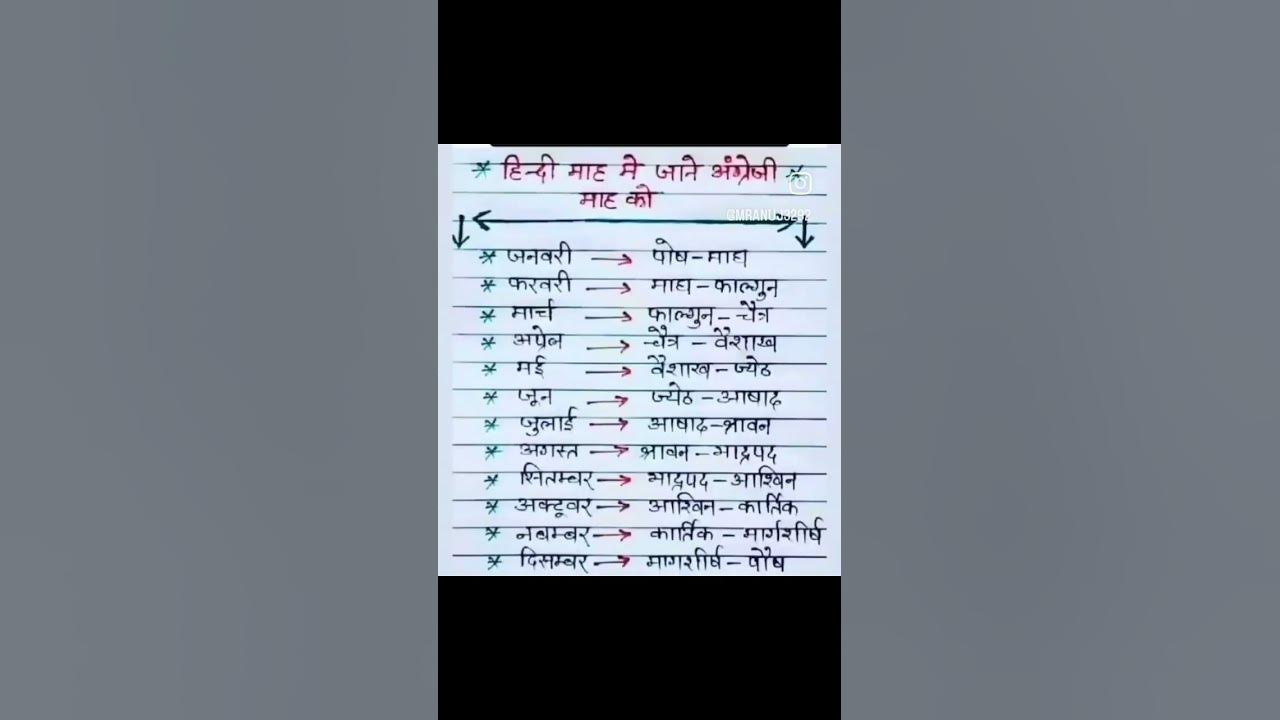 * हिन्दी माह मे जाने अंग्रेजी *
माह को
@MRANUJ3292
* जनवरी → पोष-माघ
* फरवरी → माघ-फाल्गुन
* मार्च → फाल्गुन-चैत्र
* अप्रेल → चैत्र - वैशाख
* मई → वैशाख-ज्येठ
* जून → ज्येठ-आषाद
* जुलाई → आषाद-श्रावन
* अगस्त → श्रावन-भाद्रपद
* सितम्बर → भाद्रपद-आश्विन
* अक्टूवर → आश्विन-कार्तिक
* नवम्बर → कार्तिक - मार्गशीर्ष
* दिसम्बर → मागशीर्ष-पौष